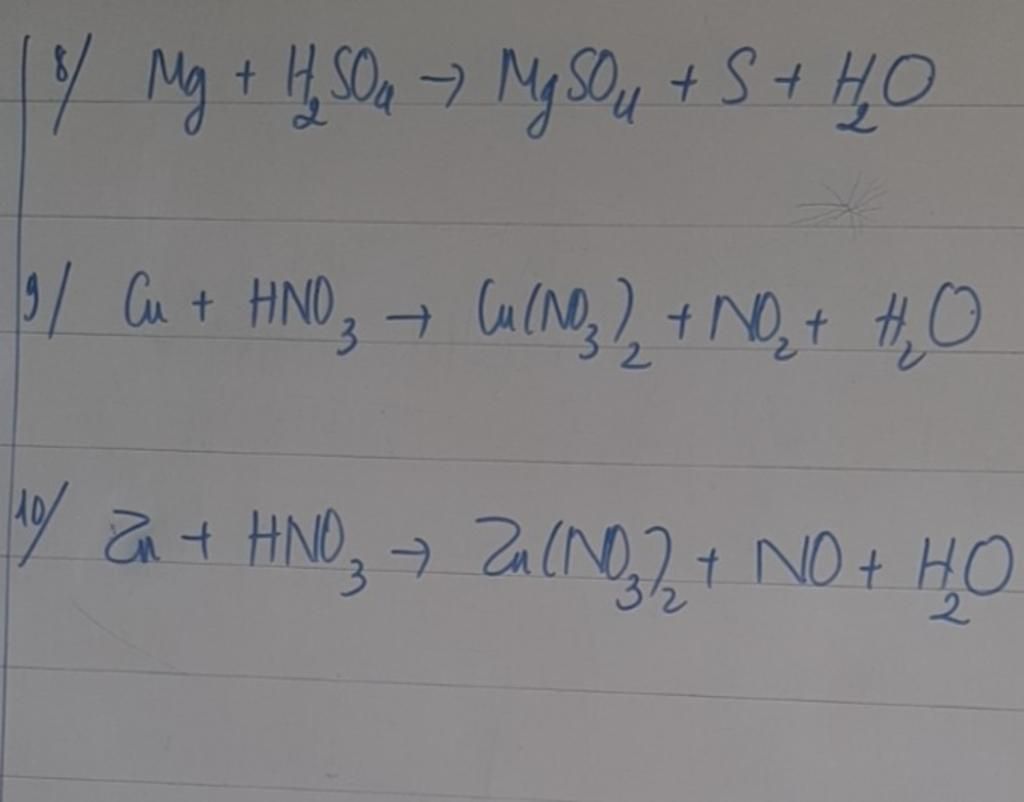 8/ Mg + H₂SO₄ → MgSO₄ + S + H₂O
9/ Cu + HNO₃ → Cu(NO₃)₂ + NO₂ + H₂O
10/ Zn + HNO₃ → Zn(NO₃)₂ + NO + H₂O